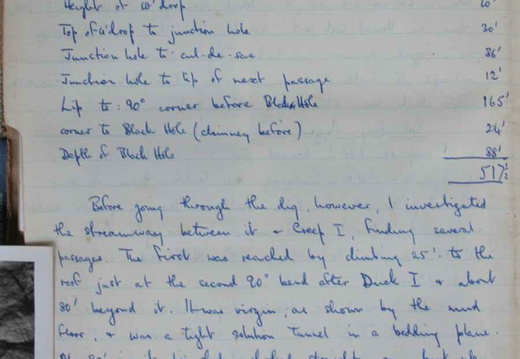 Height of 10' drop 10'
Top of 10' drop to junction hole 30'
Junction hole to cul-de-sac 36'
Junction hole to lip of next passage 12'
Lip to 90° corner before Black Hole 165'
corner to Black Hole (chimney before) 24'
Depth of Black Hole 88'
517½'
Before going through the dig, however, I investigated
the streamway between it + Creep I, finding several
passages. The first was reached by climbing 25' to the
roof just at the second 90° bend after Duck I + about
80' beyond it. It was virgin, as shown by the mud
floor, + was a tight solution tunnel in a bedding plane.